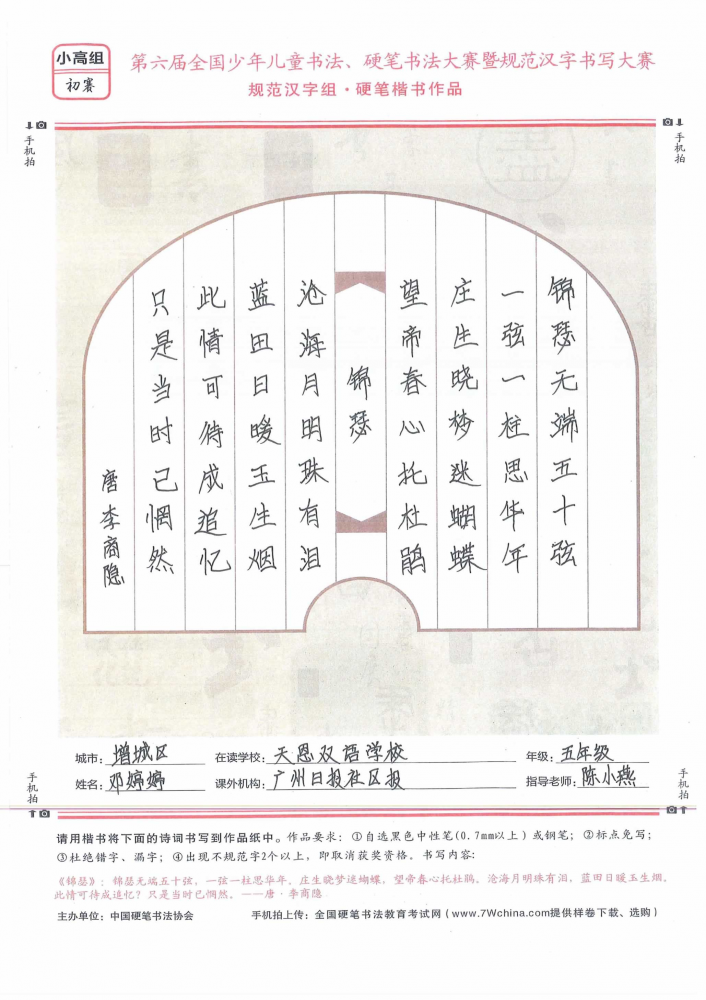 小高组
初赛
第六届全国少年儿童书法、硬笔书法大赛暨规范汉字书写大赛
规范汉字组·硬笔楷书作品
手机拍
手机拍
锦瑟无端五十弦
一弦一柱思华年
庄生晓梦迷蝴蝶
望帝春心托杜鹃
锦瑟
沧海月明珠有泪
蓝田日暖玉生烟
此情可待成追忆
只是当时已惘然
唐李商隐
城市：增城区 在读学校：天恩双语学校 年级：五年级
姓名：邓婷婷 课外机构：广州日报社区报 指导老师：陈小燕
手机拍
手机拍
请用楷书将下面的诗词书写到作品纸中。作品要求：①自选黑色中性笔(0.7mm以上)或钢笔；②标点免写；
③杜绝错字、漏字；④出现不规范字2个以上，即取消获奖资格。书写内容：
《锦瑟》：锦瑟无端五十弦，一弦一柱思华年。庄生晓梦迷蝴蝶，望帝春心托杜鹃。沧海月明珠有泪，蓝田日暖玉生烟。
此情可待成追忆？只是当时已惘然。——唐·李商隐
主办单位：中国硬笔书法协会 手机拍上传：全国硬笔书法教育考试网（www.7Wchina.com提供样卷下载、选购）